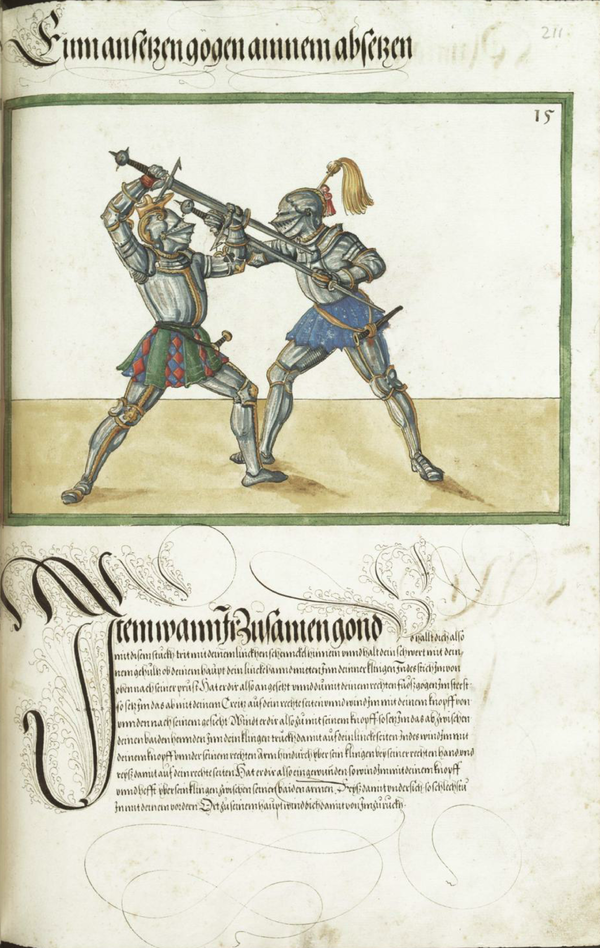 Ein ansetzen gögen ainnem absetzen
211
15
Item wann Ir zusamen gond so hallt dich also
mit disem stuckh trit mit deinem linckhen schennckel hinnein vnnd halt dein schwert mit dein
nem gehültz ob deinem haupt dein linckhe hannd mitten Inn deiner klingen Indes stich Im von
oben nach seiner prüst Hat er dir also angesetzt vnnd du mit deinem rechten fuosz gogen Im steest
so setz Im das ab mit deinem Creitz auf dein rechte seiten vnnd wind Im mit deinem knopff von
vnnden nach seinem gesicht Windt er dir als zu mit seinem knopff so setz Im das ab zwischen
deinen baiden hennden Inn dein klingen truckh damit auf dein linckhe seiten Indes wind Im mit
deinem knopff vnnder seinem rechten arm hindurch yber sein klingen bey seiner rechten hand vnd
reysz damit auf dein rechte seiten Hat er dir also eingewunden so wind Im mit deinem knopff
vnnd hefft yber sein klingen zwischen seinen baiden armen Reysz damit vndersich so schlechstu
In mit deinem vordern Ort zu seinem haupt wind dich damit von Im zuruckh